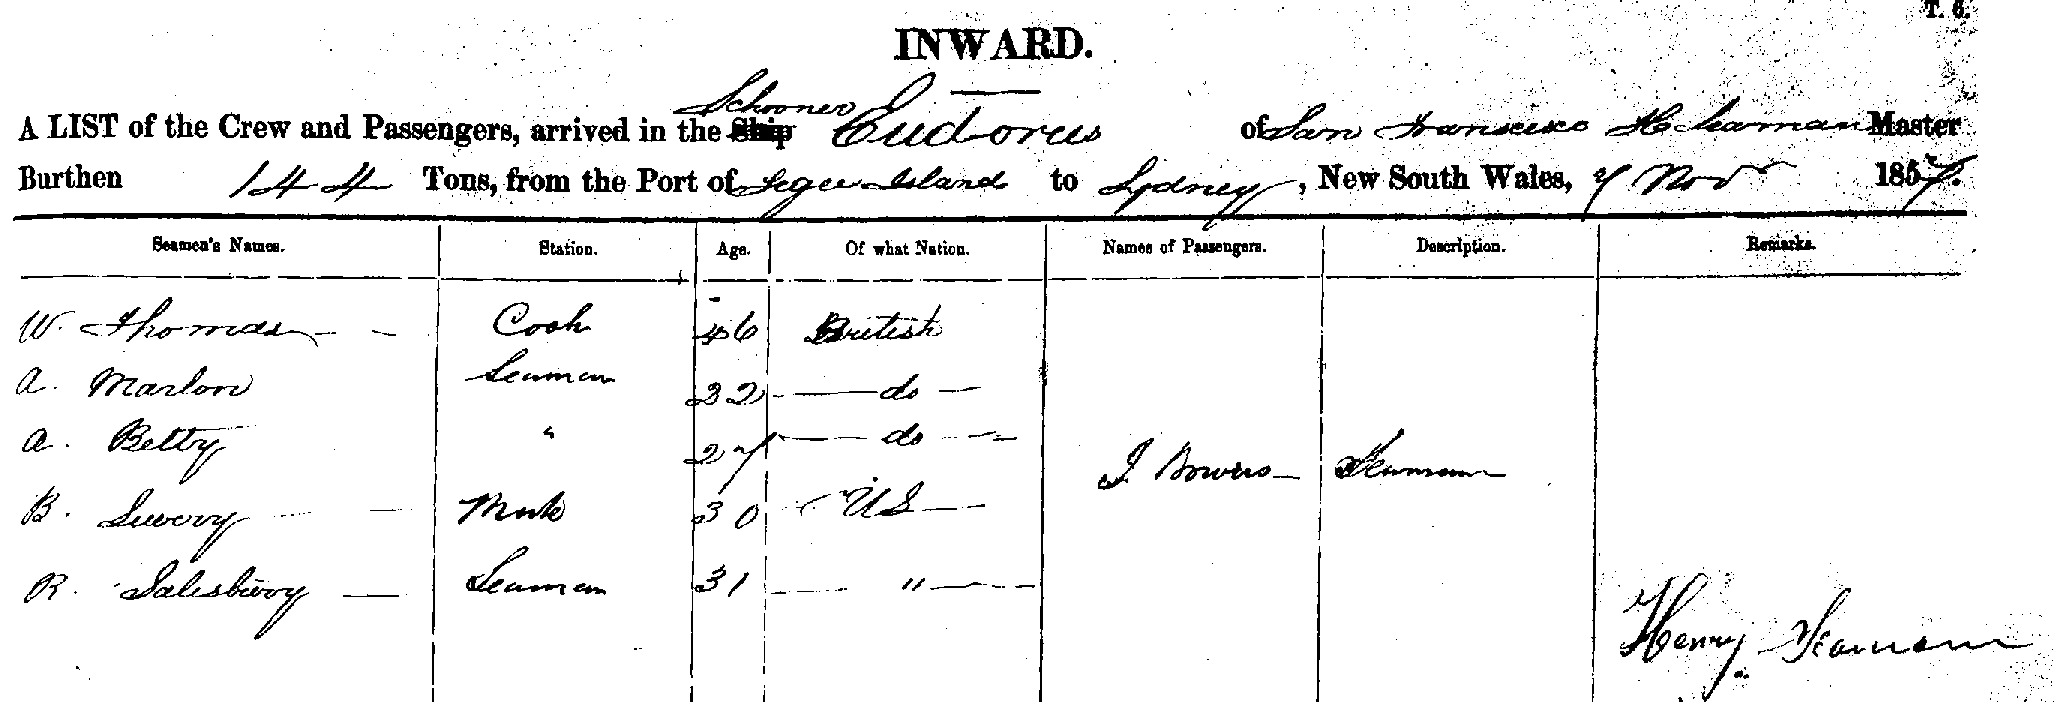 T. 6.
INWARD.
Schooner
A LIST of the Crew and Passengers, arrived in the Ship Eudorus of San Francisco H Seaman Master
Burthen 144 Tons, from the Port of Fegee Island to Sydney, New South Wales, 7 Nov 1857.
Seamen's Names. Station. Age. Of what Nation. Names of Passengers. Description. Remarks.
W. Thomas Cook 46 British
A. Marlon Seaman 22 do
A. Betty " 27 do
J. Bowers Seaman
B. Mate 30 US
R. Salesbury Seaman 31 "
Henry Seaman